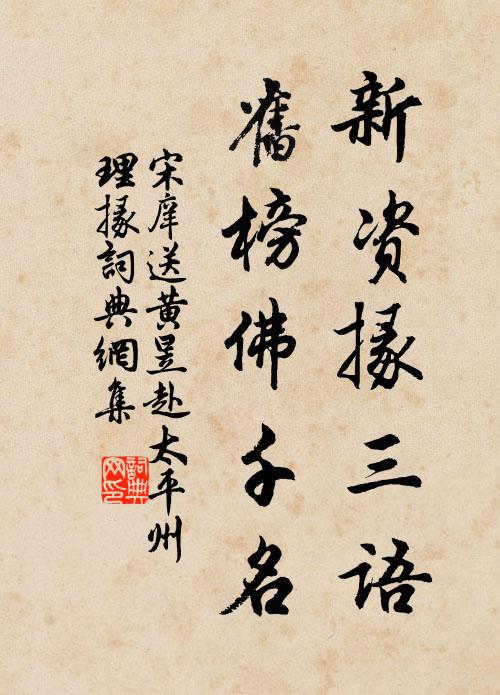 新资掾三语
舊榜佛千名
宋庠送黄昱赴太平州
理掾詞典網集
詞典网印